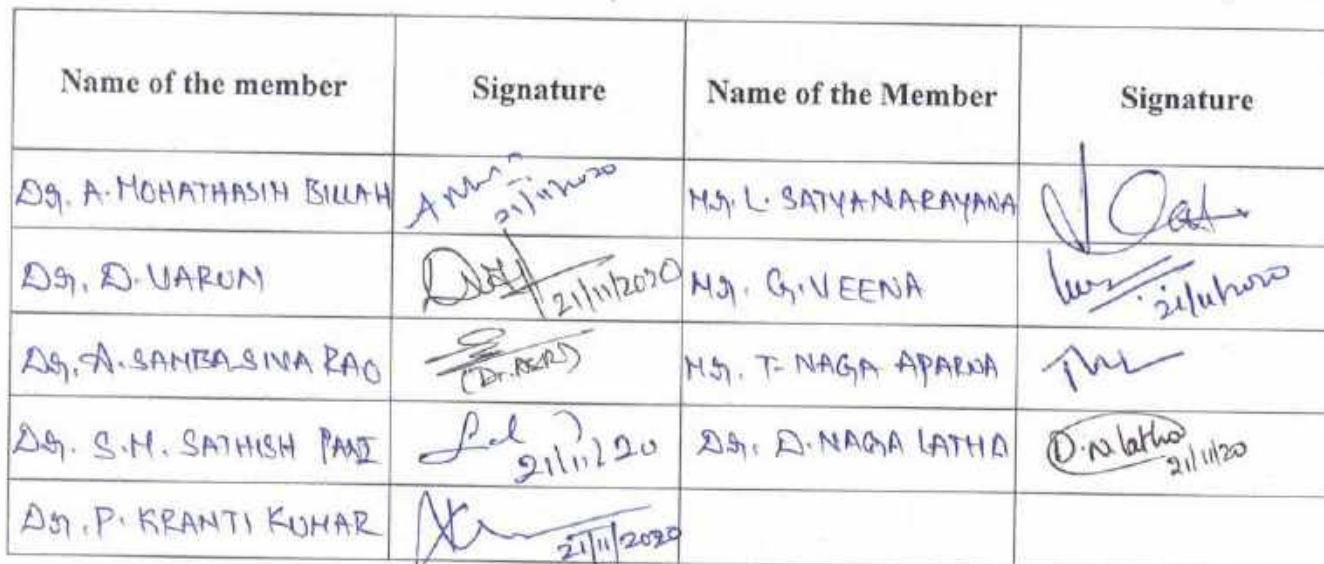 Name of the member Signature Name of the Member Signature
Dr. A. MOHATHASIM BILLAH 21/11/2020 Mr. L. SATYANARAYANA
Dr. D. VARUN 21/11/2020 Mr. G. VEENA 21/11/2020
Dr. A. SAMBASIVA RAO (Dr. ASR) Mr. T. NAGA APARNA
Dr. S.M. SATHISH 21/11/20 Dr. D. NAGA LATHA D.N latha 21/11/20
Dr. P. KRANTI KUMAR 21/11/2020